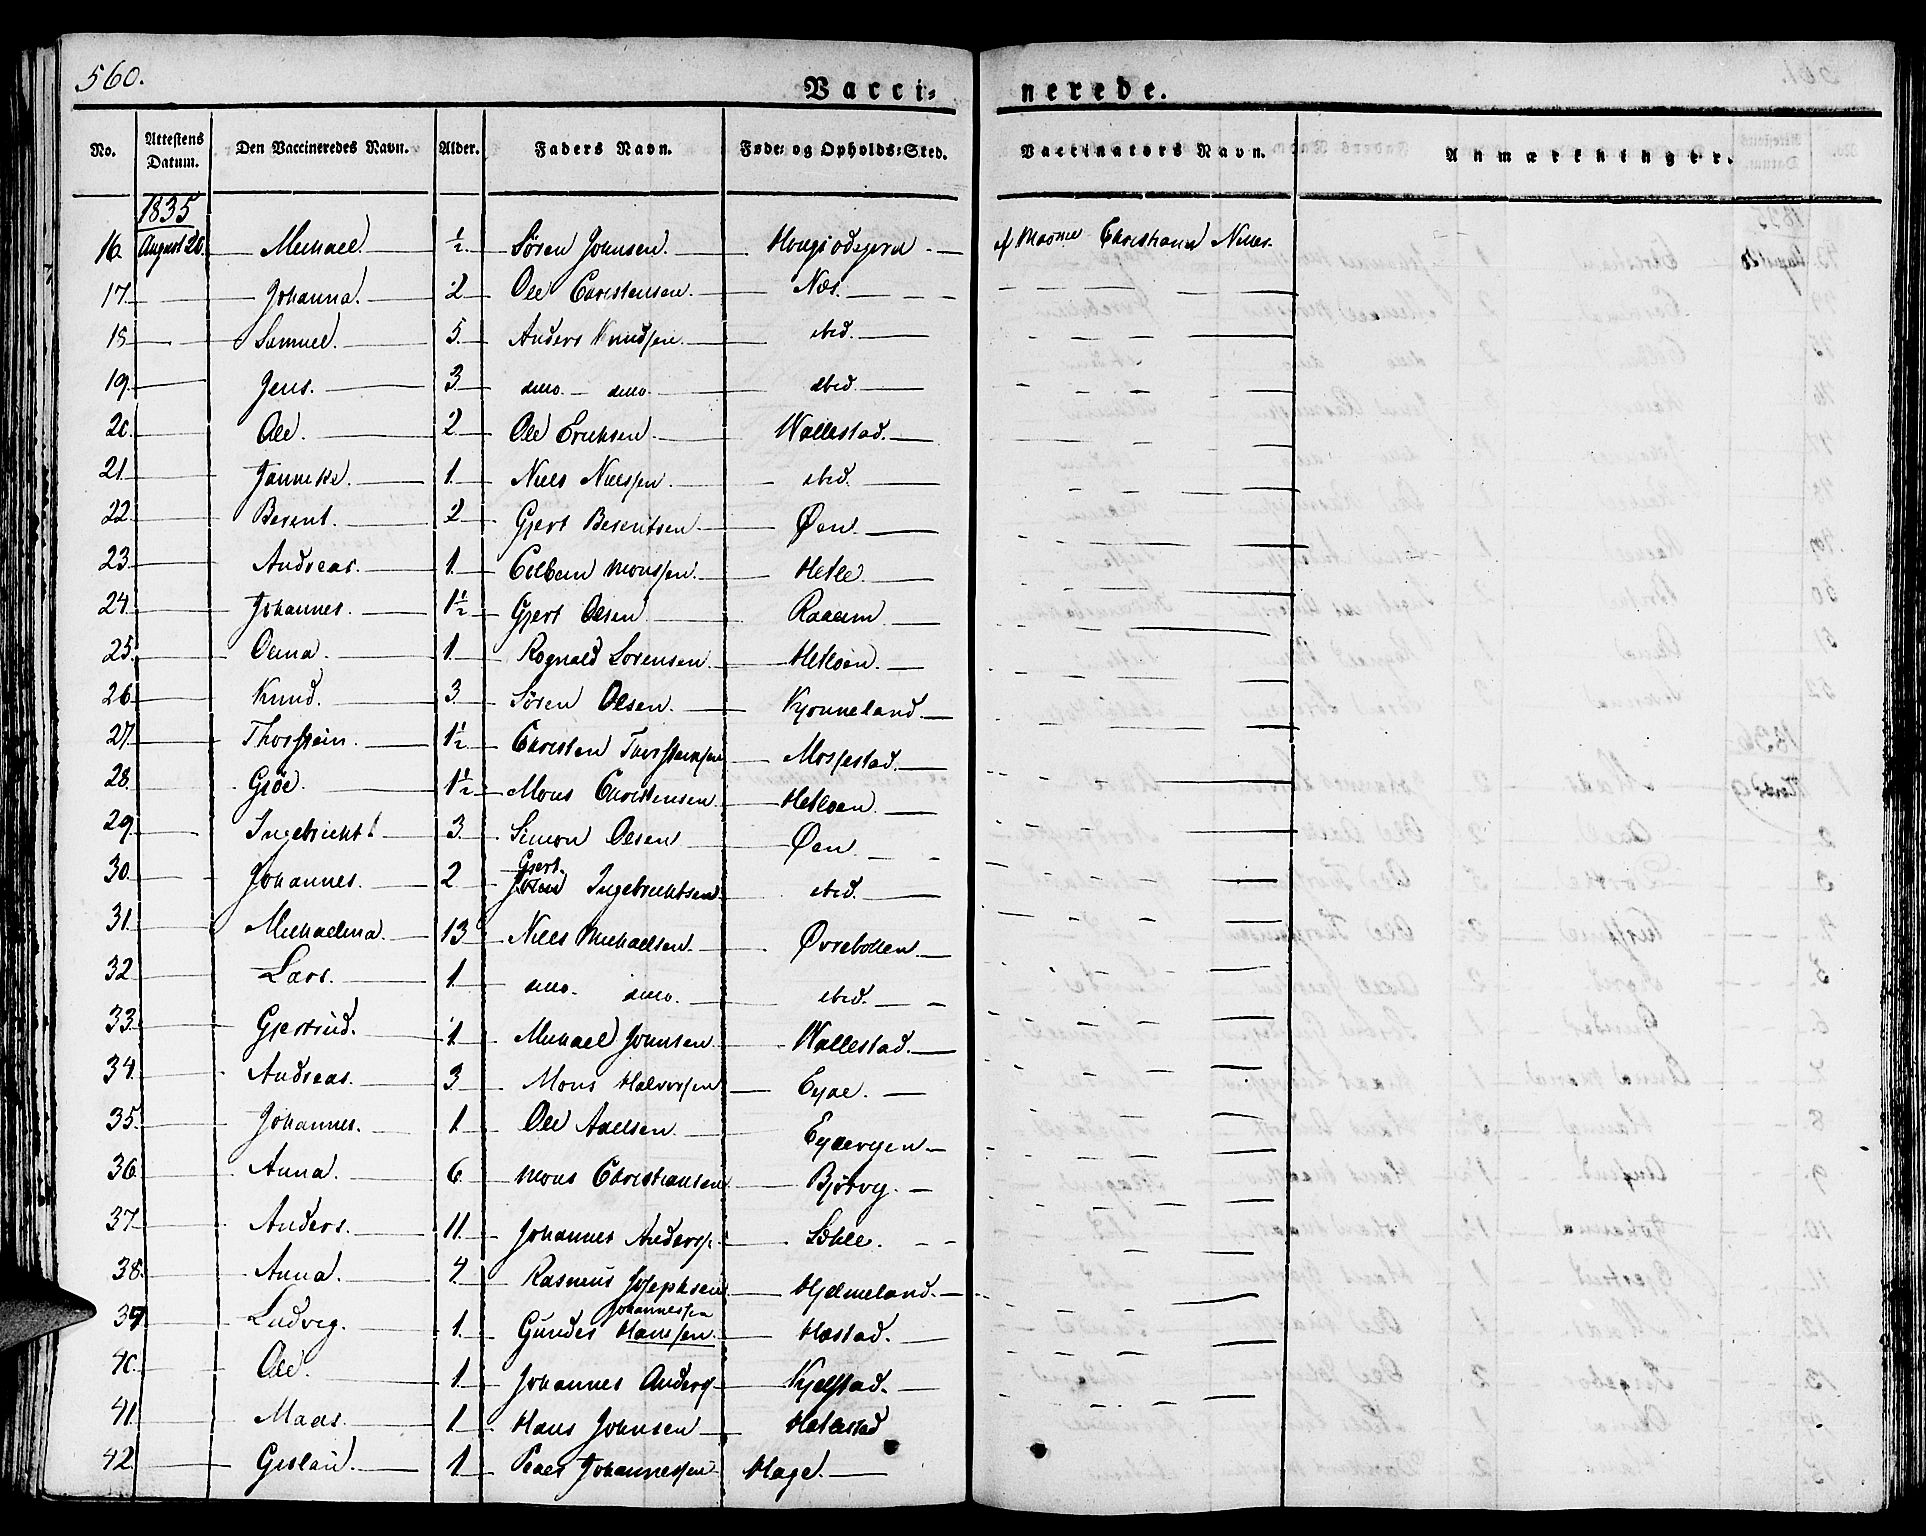 560.
Vacci-
nerede.
No. Attestens Datum. Den Vaccineredes Navn. Alder. Faders Navn. Føde- og Opholds-Sted. Vaccinators Navn. Anmærkninger.
1835
16. August 20. Michael. ½ Søren Johnsen. Christiana Niels.
17. Johanna. 2 Ole Christensen. Næs.
18 Samuel. 5. Anders Knudsen. ibid.
19. Jens. 3 dito - dito. ibid.
20. Ole. 2. Ole Ericksen. Wallestad.
21. Janneke. 1. Niels Nielssen. ibid.
22. Berent. 2 Gjert Berentsen Øen.
23. Andreas. 1. Colben Monssen. Hetle.
24. Johannes. 1½ Gjert Olsen
25. Olena. 1. Rognald Sørensen Hetløen.
26. Knud. 3. Søren Olsen. Kjonneland.
27. Thorstein. 1½ Christen Thorsteinsen Mossestad.
28. Gjøe. 1½ Mons Christensen. Hetløen.
29. Ingebricht 3. Simon Olsen Øen
30. Johannes. 2 Gjert Ingebrichtsen ibid.
31. Michaelina. 13. Niels Michaelsen. Øvrebotten.
32 Lars. 1. dito. dito. ibid.
33. Gjertrud. 1. Michael Johnsen Wallestad.
34. Andreas. 3 Mons Halvorsen Eyde.
35. Johannes. 1. Ole Adelsen.
36. Anna. 6. Mons Christiansen
37. Anders. 11. Johannes Anderss.
38. Anna. 4. Rasmus Josephsen Hjelmeland.
Johannessen
39. Ludvig. 1. Gunder Hansen. Hæstad.
40. Ole. 1. Johannes Anders Kjelstad.
41. Maas. 1. Hans Johnsen Hetlestad
42. 1 Peder Johannessen Hage.